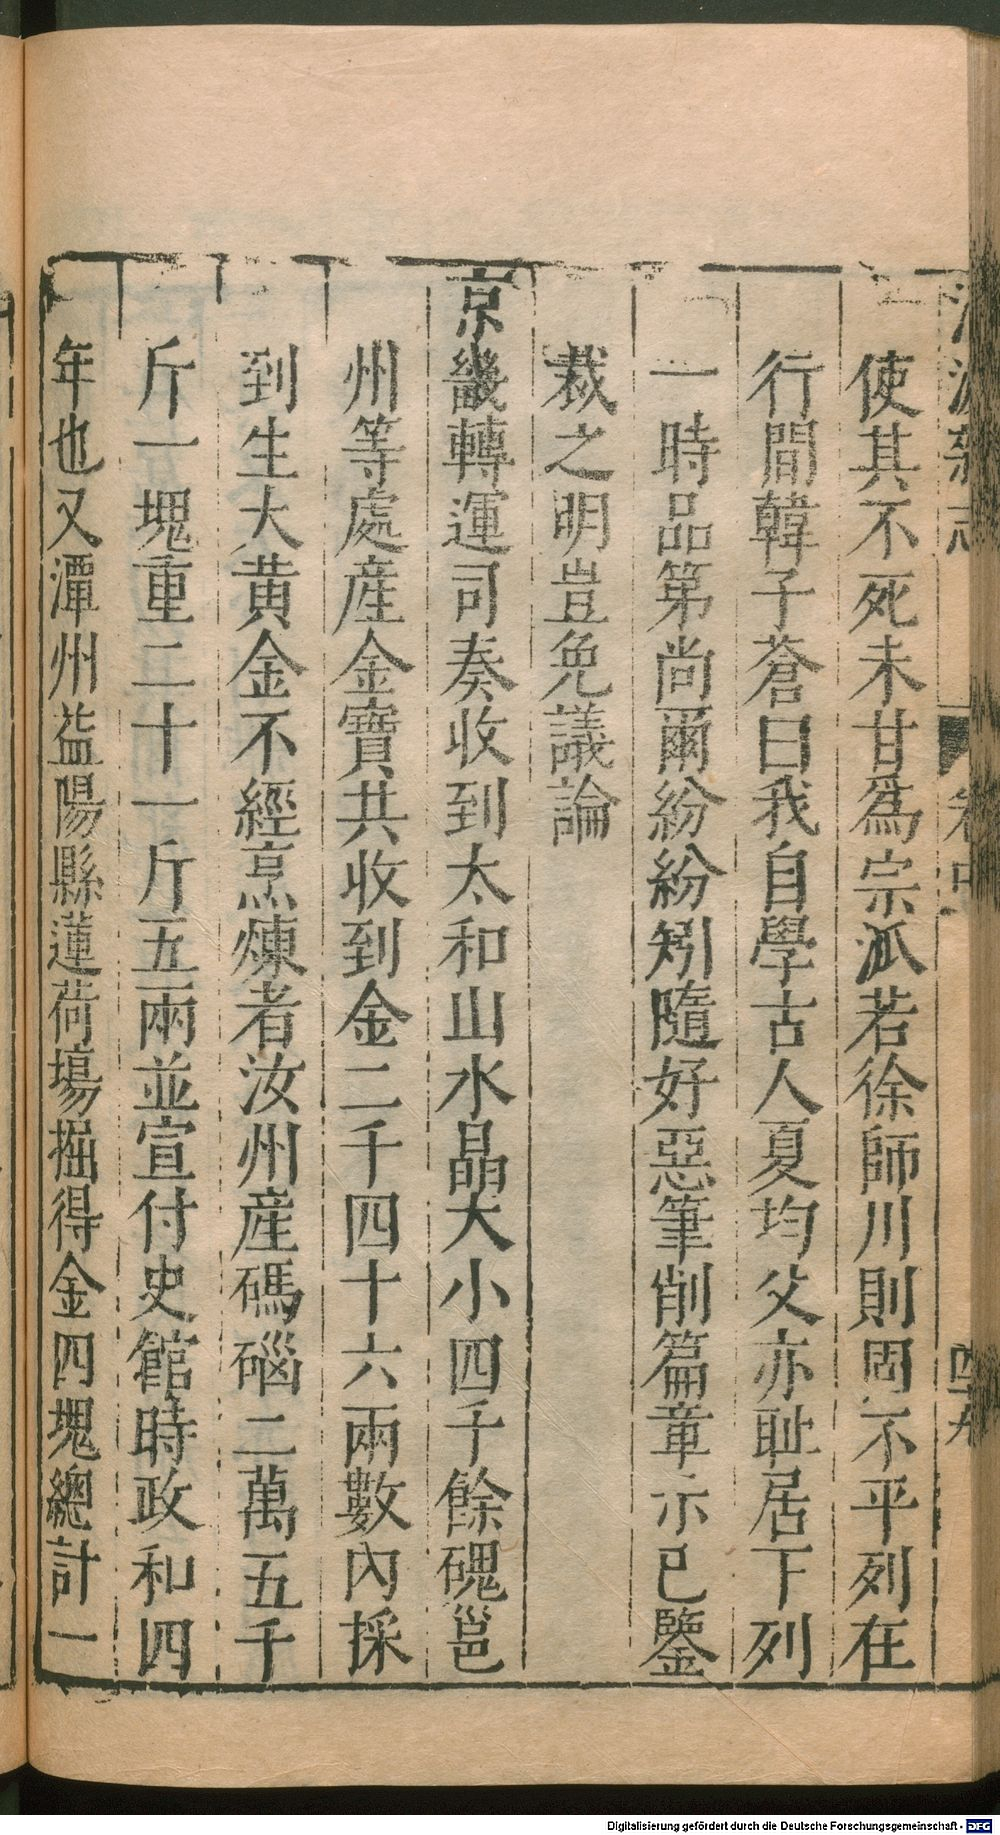 使其不死未甘爲宗派若徐師川則固不平列在
行間韓子蒼曰我自學古人夏均父亦耻居下列
一時品第尚爾紛紛矧隨好惡筆削篇章示已鑒
裁之明豈免議論
京畿轉運司奏收到太和山水晶大小四千餘磈邕
州等處産金寶共收到金二千四十六兩數內採
到生大黄金不經烹煉者汝州産碼碯二萬五千
斤一塊重二十一斤五兩並宣付史館時政和四
年也又潭州益陽縣蓮荷塲掘得金四塊總計一
四十九
Digitalisierung gefördert durch die Deutsche Forschungsgemeinschaft - DFG